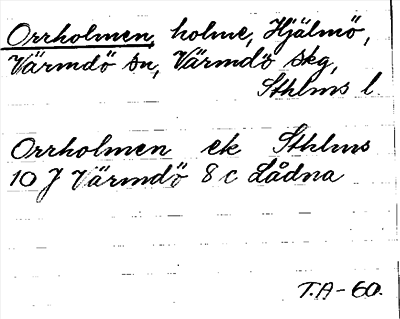 Orrholmen, holme, Hjälmö,
Värmdö sn, Värmdö skg,
Sthlms l.
Orrholmen ek Sthlms
10 J Värmdö 8 c Lådna
T.A-60.